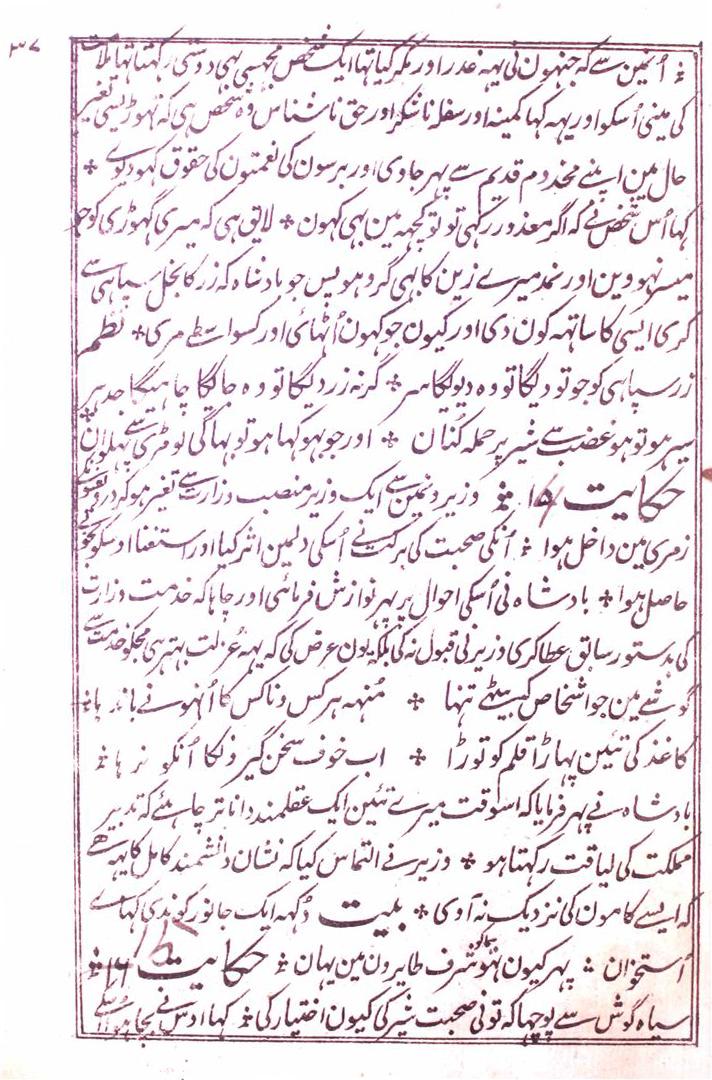 ٣٧
اُنہین سے کہ جنہون نی یہہ غدر اور مکر کیا تہا ایک شخص مجہسی بہی دوستی رکہتا تہا ملامت
کی مینی اُسکو اور یہہ کہا کمینہ اور سفلہ ناشکر اور حق ناشناس وہ شخص ہی کہ تہوڑیسی تغیر
حال مین اپنے مخدوم قدیم سے پہر جاوی اور برسون کی نعمتون کی حقوق کہو دیوے ❊
کہا اُس شخص نے کہ اگر معذور رکہی تو تو کچہہ مین بہی کہون ❊ لایق ہی کہ میری گہوڑی کو جو
میسر نہووین اور نمد میرے زین کا بہی گرو ہو پس جو بادشاہ کہ زر کا بخل سپاہی سے
کری ایسی کا ساتہہ کون دی اور کیون جوکہون اُٹہائی اور کسواسطے مری ❊ نظم
زر سپاہی کو جو تو دیگا تو وہ دیوگا سر ❊ گر نہ زر دیگا تو وہ جائگا چاہیگا جدہر
سیر ہو تو ہو غضب سے شیر پر حملہ کنان ❊ اور جو بہوکہا ہو تو بہاگی لومڑی سے پہلوان
حکایت ١٥ ❊ وزیرونمین سے ایک وزیر منصب وزارت سے تغیر ہو کر درویشونکے
زمری مین داخل ہوا ❊ اُنکی صحبت کی برکت نے اُسکی دلمین اثر کیا اور استغنا اوسکو بخوبی
حاصل ہوا ❊ بادشاہ نی اُسکی احوال پر پہر نوازش فرمائی اور چاہا کہ خدمت وزارت
کی بدستور سابق عطا کری وزیر نی قبول نہ کی بلکہ یون عرض کی کہ یہہ عُزلت بہتر ہی مجکو خدمت سے
گوشے مین جو اشخاص کہ بیٹہے تنہا ❊ مُنہہ ہر کس و ناکس کا اُنہو نے باندہا ❊
کاغذ کی تئین پہاڑا قلم کو توڑا ❊ اب خوف سخن گیرونکا اُنکو نرہا ❊
بادشاہ نے پہر فرمایا کہ اسوقت میرے تئین ایک عقلمند دانا تر چاہئے کہ تدبیر
مملکت کی لیاقت رکہتا ہو ❊ وزیر نے التماس کیا کہ نشان دانشمند کامل کا یہہ ہے
کہ ایسے کامون کی نزدیک نہ آوی ❊ بیت دُکہہ ایک جانور کو ندی کہاے
اُستخوان ❊ پہر کیون نہو ہما کو شرف طایرون مین یہان ❊ حکایت ١٦ ❊
سیاہ گوش سے پوچہا کہ تونی صحبت شیر کی کیون اختیار کی ❊ کہا اوس نے